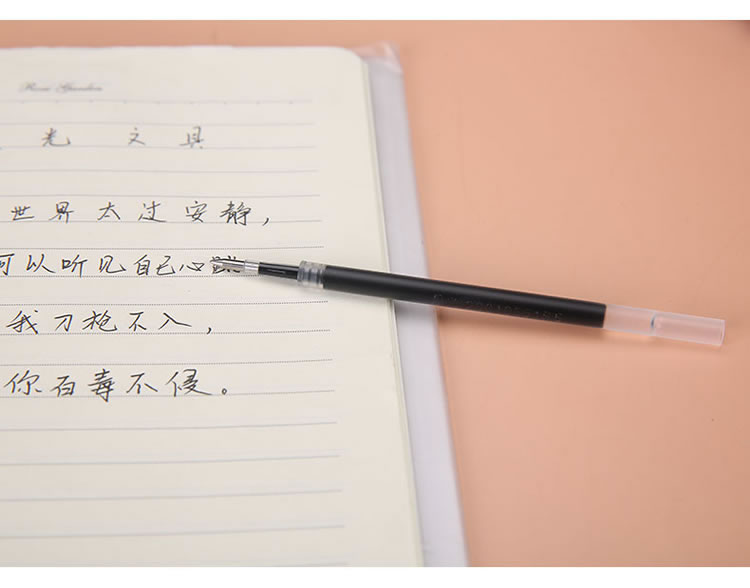 Rose Garden
光 文具
世界太过安静,
可以听见自己心跳
我刀枪不入,
你百毒不侵。